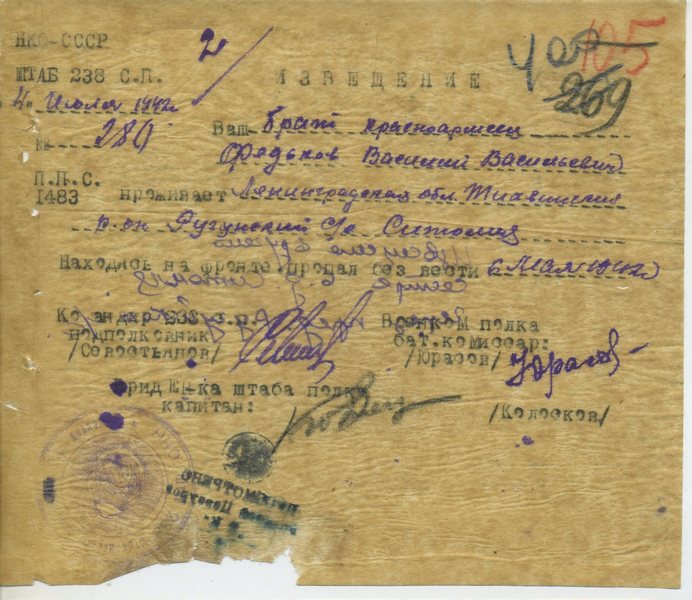 НКО-СССР
2
105
ШТАБ 238 С.П.
269
ИЗВЕЩЕНИЕ
4 Июля 1942г
№ 280
Ваш Брат красноармеец
Федьков Василий Васильевич
П.П.С.
1483
проживает Ленинградская обл. Тихвинский
р-он Ругунский с/с Ситомля
Находясь на фронте пропал без вести 6 Мая 1942г
Командир 238 с.п.
Военком полка
подполковник
бат.комиссар:
/Севостьянов/
/Юрасов/
Юрасов
Врид Н-ка штаба полка
капитан:
/Колосков/
НКО